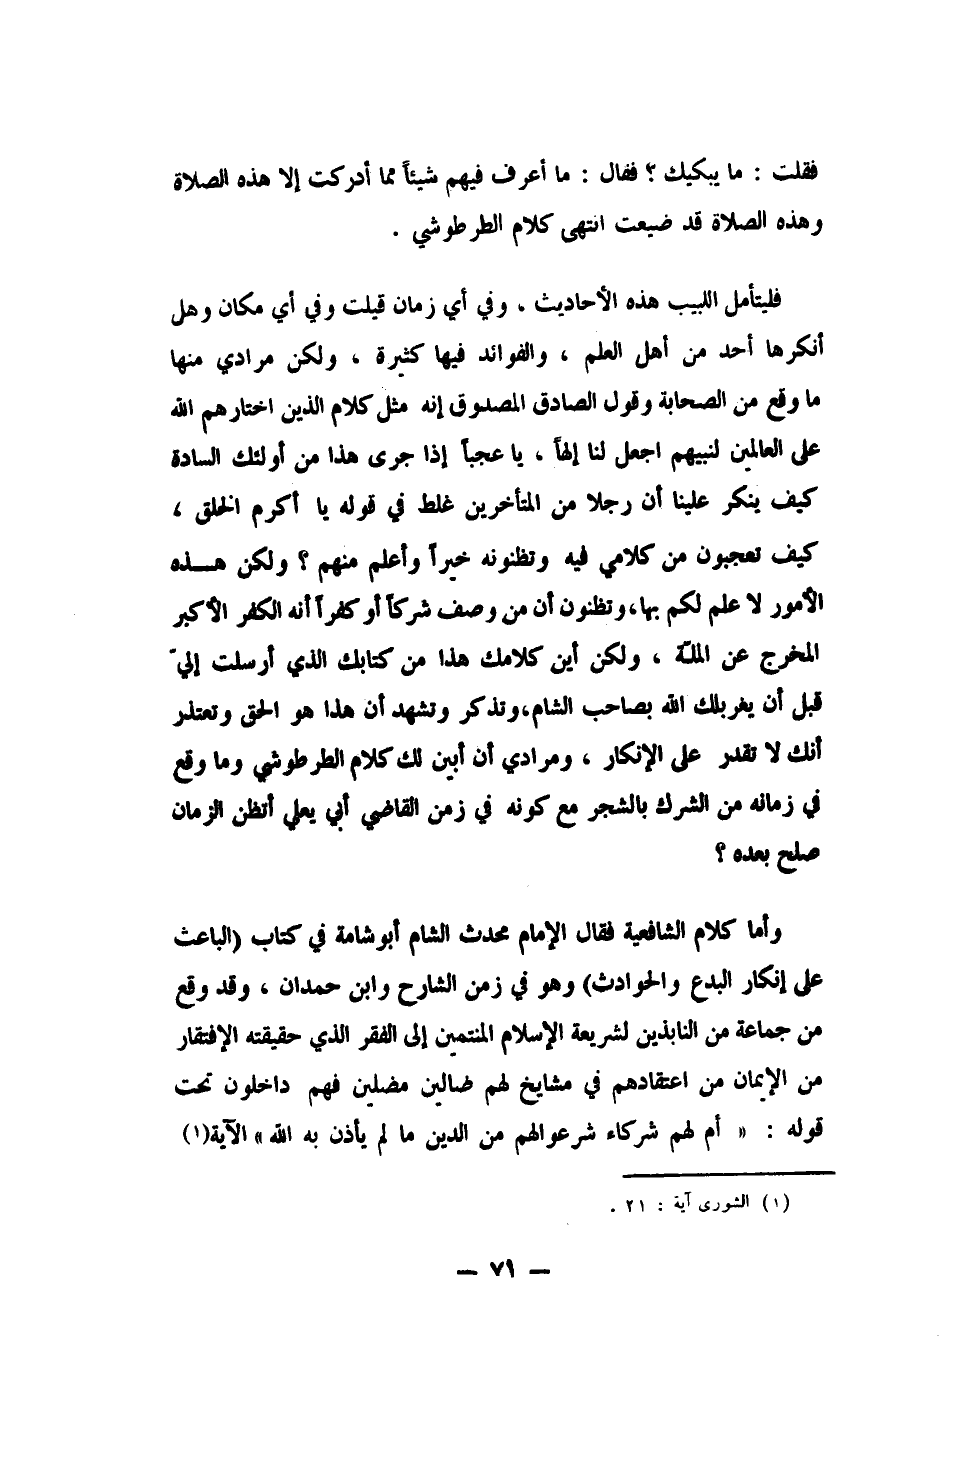 فقلت : ما يبكيك ؟ فقال : ما أعرف فيهم شيئاً مما أدركت إلا هذه الصلاة
وهذه الصلاة قد ضيعت انتهى كلام الطرطوشي .
فليتأمل اللبيب هذه الأحاديث . وفي أي زمان قيلت وفي أي مكان وهل
أنكرها أحد من أهل العلم ، والفوائد فيها كثيرة ، ولكن مرادي منها
ما وقع من الصحابة وقول الصادق المصدوق إنه مثل كلام الذين اختارهم الله
على العالمين لنبيهم اجعل لنا إلهاً ، يا عجباً إذا جرى هذا من أولئك السادة
كيف ينكر علينا أن رجلا من المتأخرين غلط في قوله يا أكرم الخلق ،
كيف تعجبون من كلامي فيه وتظنونه خيراً وأعلم منهم ؟ ولكن هـــذه
الأمور لا علم لكم بها، وتظنون أن من وصف شركاً أو كفراً أنه الكفر الأكبر
المخرج عن الملّة ، ولكن أين كلامك هذا من كتابك الذي أرسلت إليّ
قبل أن يغربلك الله بصاحب الشام، وتذكر وتشهد أن هذا هو الحق وتعتذر
أنك لا تقدر على الإنكار ، ومرادي أن أبين لك كلام الطرطوشي وما وقع
في زمانه من الشرك بالشجر مع كونه في زمن القاضي أبي يعلي أتظن الزمان
صلح بعده ؟
وأما كلام الشافعية فقال الإمام محدث الشام أبو شامة في كتاب (الباعث
على إنكار البدع والحوادث) وهو في زمن الشارح وابن حمدان ، وقد وقع
من جماعة من النابذين لشريعة الإسلام المنتمين إلى الفقر الذي حقيقته الإفتقار
من الإيمان من اعتقادهم في مشايخ لهم ضالين مضلين فهم داخلون تحت
قوله : « أم لهم شركاء شرعوا لهم من الدين ما لم يأذن به الله » الآية(١)
(١) الشورى آية : ٢١ .
— ٧١ —